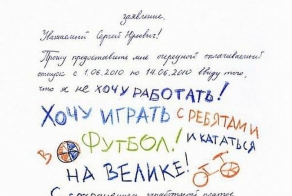 заявление.
Уважаемый Сергей Юрьевич!
Прошу предоставить мне очередной оплачиваемый
отпуск с 1.06.2010 по 14.06.2010 ввиду того,
что я не ХОЧУ РАБОТАТЬ!
ХОЧУ ИГРАТЬ С РЕБЯТАМИ
В ФУТБОЛ! И КАТАТЬСЯ
НА ВЕЛИКЕ!
С сохранением заработной платы